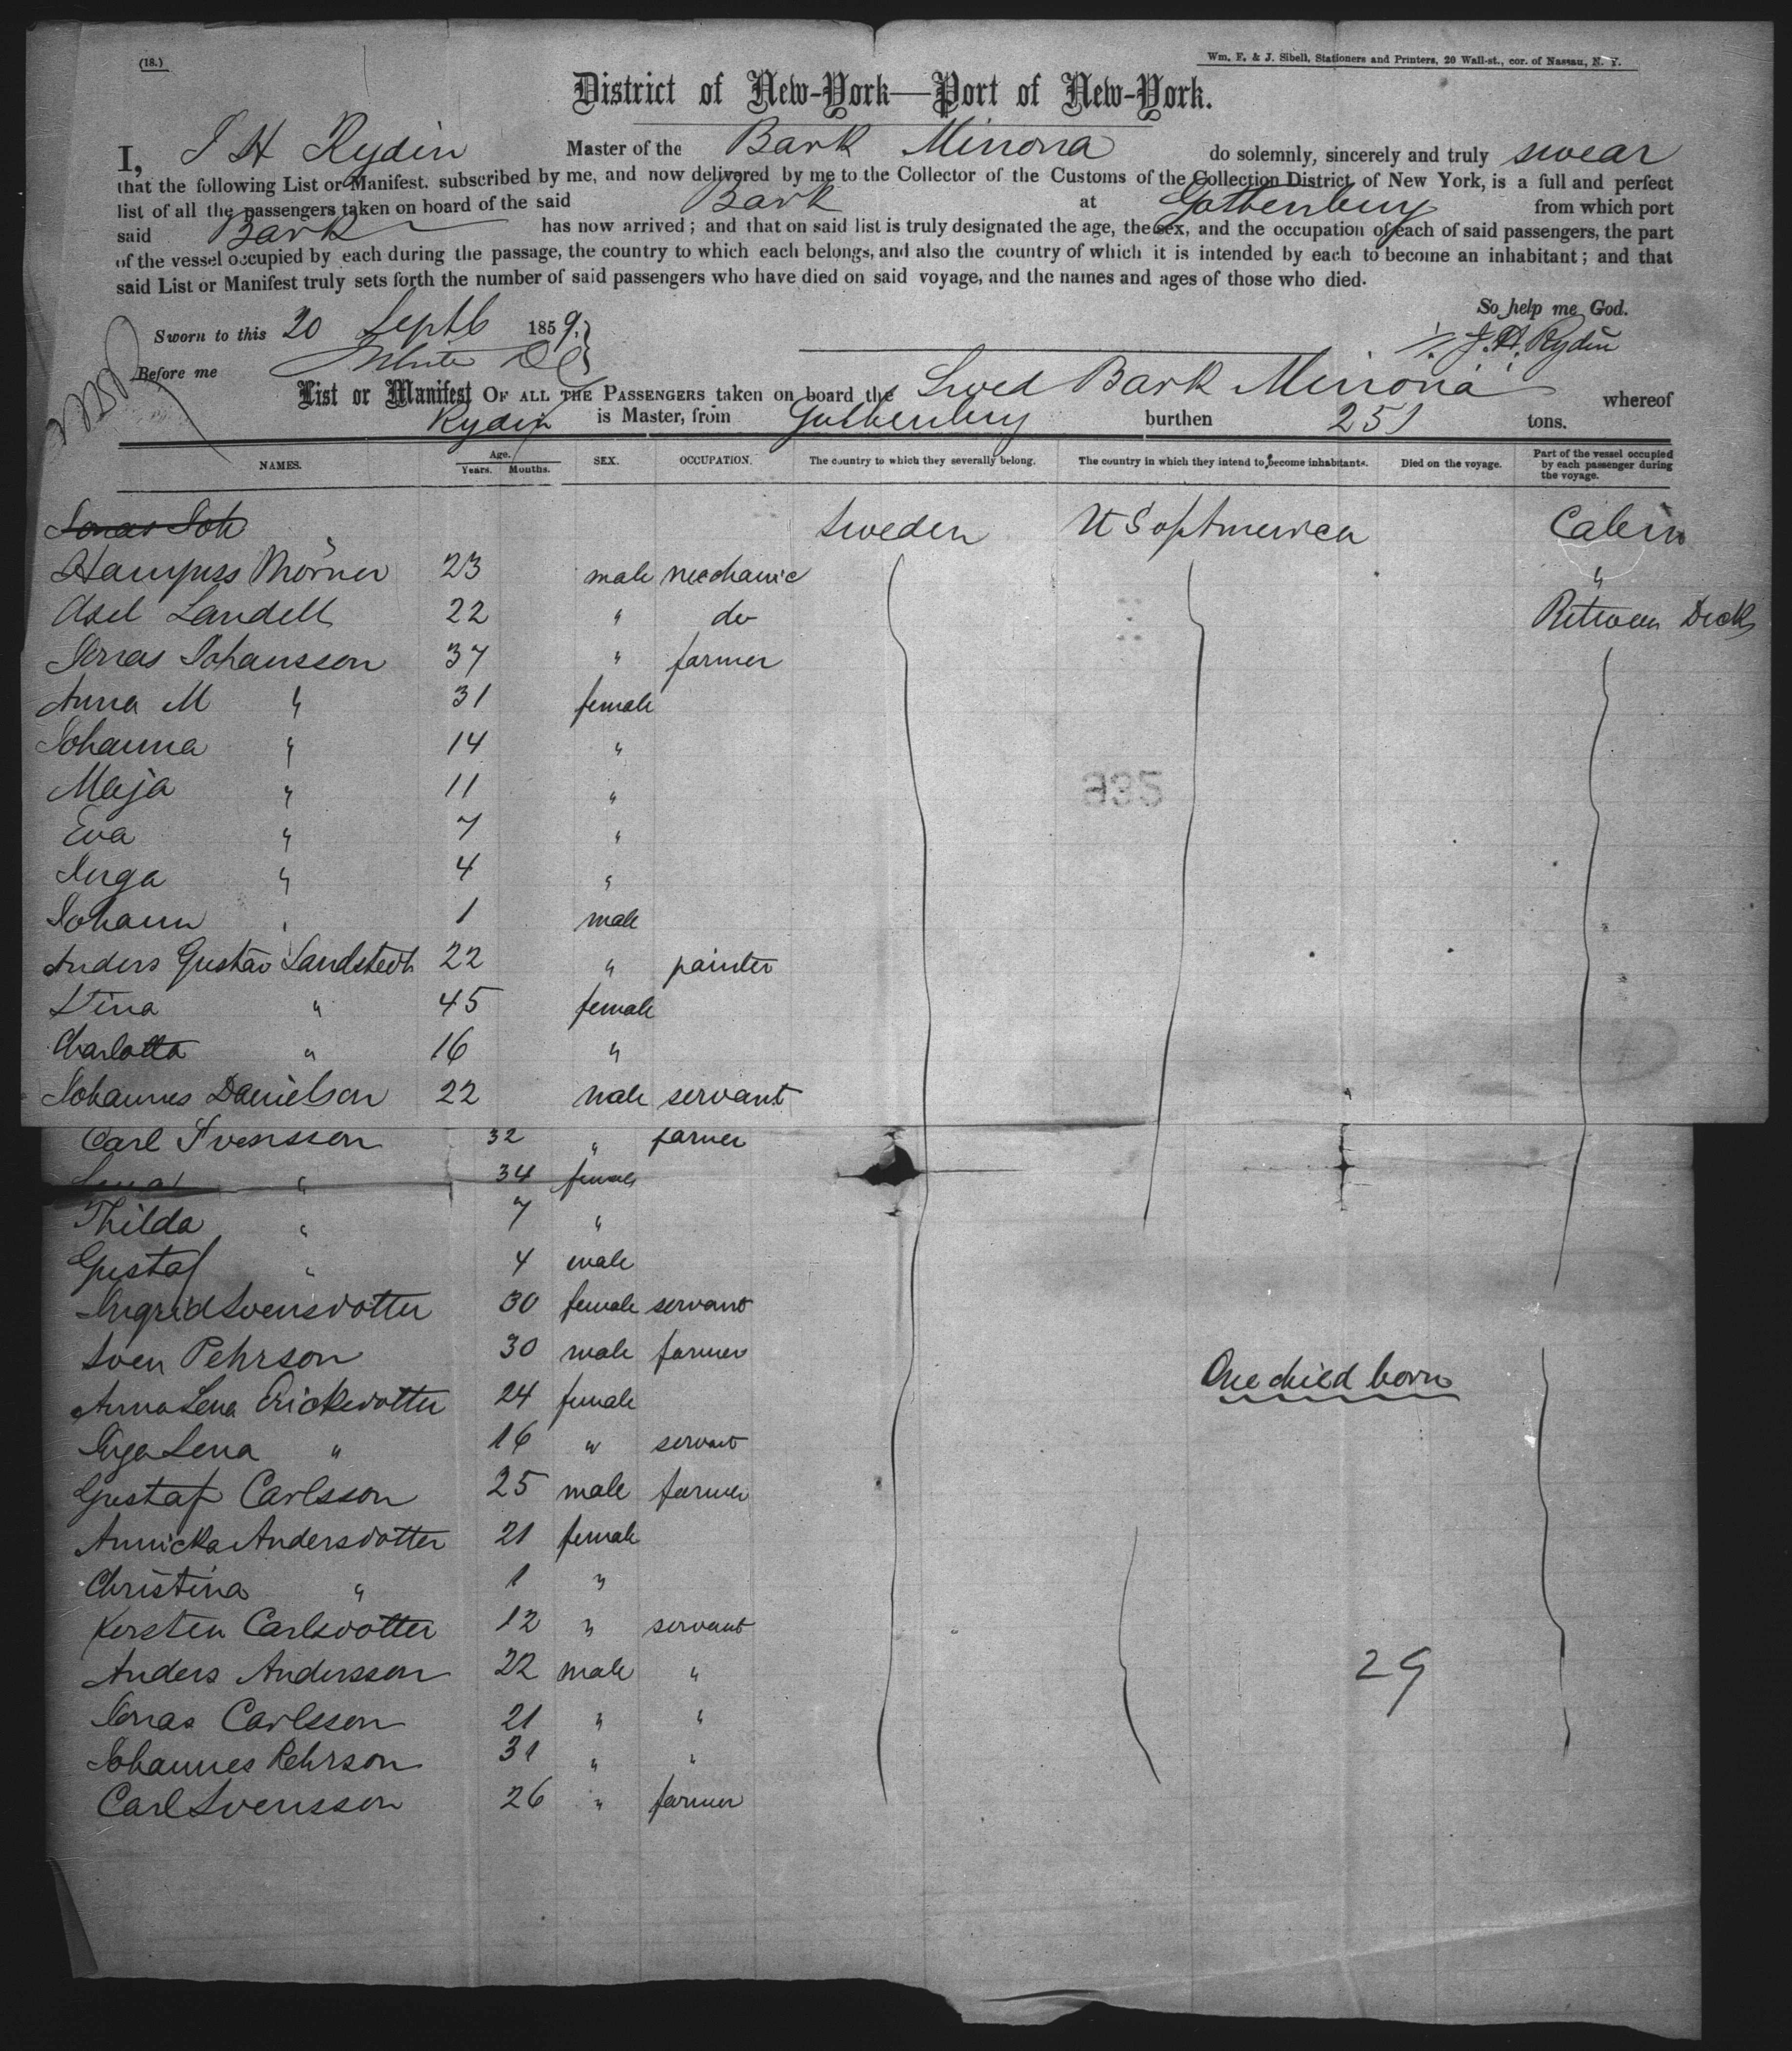 (18.)
Wm. F. & J. Sibell, Stationers and Printers, 20 Wall-st., cor. of Nassau, N. Y.
District of New-York—Port of New-York.
I, J H Rydin Master of the Bark Minona do solemnly, sincerely and truly swear
that the following List or Manifest. subscribed by me, and now delivered by me to the Collector of the Customs of the Collection District of New York, is a full and perfect
list of all the passengers taken on board of the said Bark at Gothenburg from which port
said Bark has now arrived; and that on said list is truly designated the age, the sex, and the occupation of each of said passengers, the part
of the vessel occupied by each during the passage, the country to which each belongs, and also the country of which it is intended by each to become an inhabitant; and that
said List or Manifest truly sets forth the number of said passengers who have died on said voyage, and the names and ages of those who died.
So help me God.
Sworn to this 20 Septb 1859.
J. H. Rydin
Before me White
List or Manifest OF ALL THE PASSENGERS taken on board the Swed Bark Minona whereof
Rydin is Master, from Gothenburg burthen 251 tons.
NAMES. Age. Years. Months. SEX. OCCUPATION. The country to which they severally belong. The country in which they intend to become inhabitants. Died on the voyage. Part of the vessel occupied by each passenger during the voyage.
Jonas Joh Sweden U S of America Cabin
Hampuss Mörner 23 male mechanic "
Axel Landell 22 " do Between Deck
Jonas Johansson 37 " farmer
Anna M " 31 female
Johanna " 14 "
Maja " 11 "
Eva " 7 "
Inga " 4 "
Johann " 1 male
932
Anders Gustav Landstedt 22 " painter
Stina " 45 female
Charlotta " 16 "
Johannes Danielson 22 male servant
Carl Svensson 32 " farmer
Lena " 34 female
Thilda " 7 "
Gustaf " 4 male
Ingrid Svensdotter 30 female servant
Sven Pehrson 30 male farmer
One child born
Anna Lena Ericksdotter 24 female
Inga Lena " 16 " servant
Gustaf Carlsson 25 male farmer
Annicka Andersdotter 21 female
Christina " 1 "
Kersten Carlsdotter 12 " servant
Anders Andersson 22 male " 29
Jonas Carlsson 21 " "
Johannes Pehrson 31 " "
Carl Svensson 26 " farmer